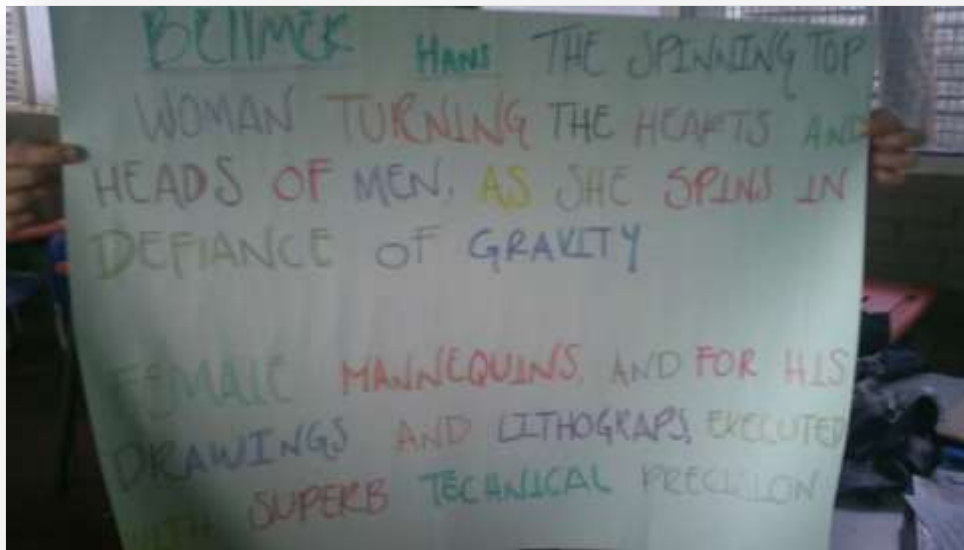 BEllMER HANS THE SPINNING TOP
WOMAN TURNING THE HEARTS AND
HEADS OF MEN, AS SHE SPINS IN
DEFIANCE OF GRAVITY
FEMALE MANNEQUINS, AND FOR HIS
DRAWINGS AND LITHOGRAPS, EXECUTED
WITH SUPERB TECHNICAL PRECISION